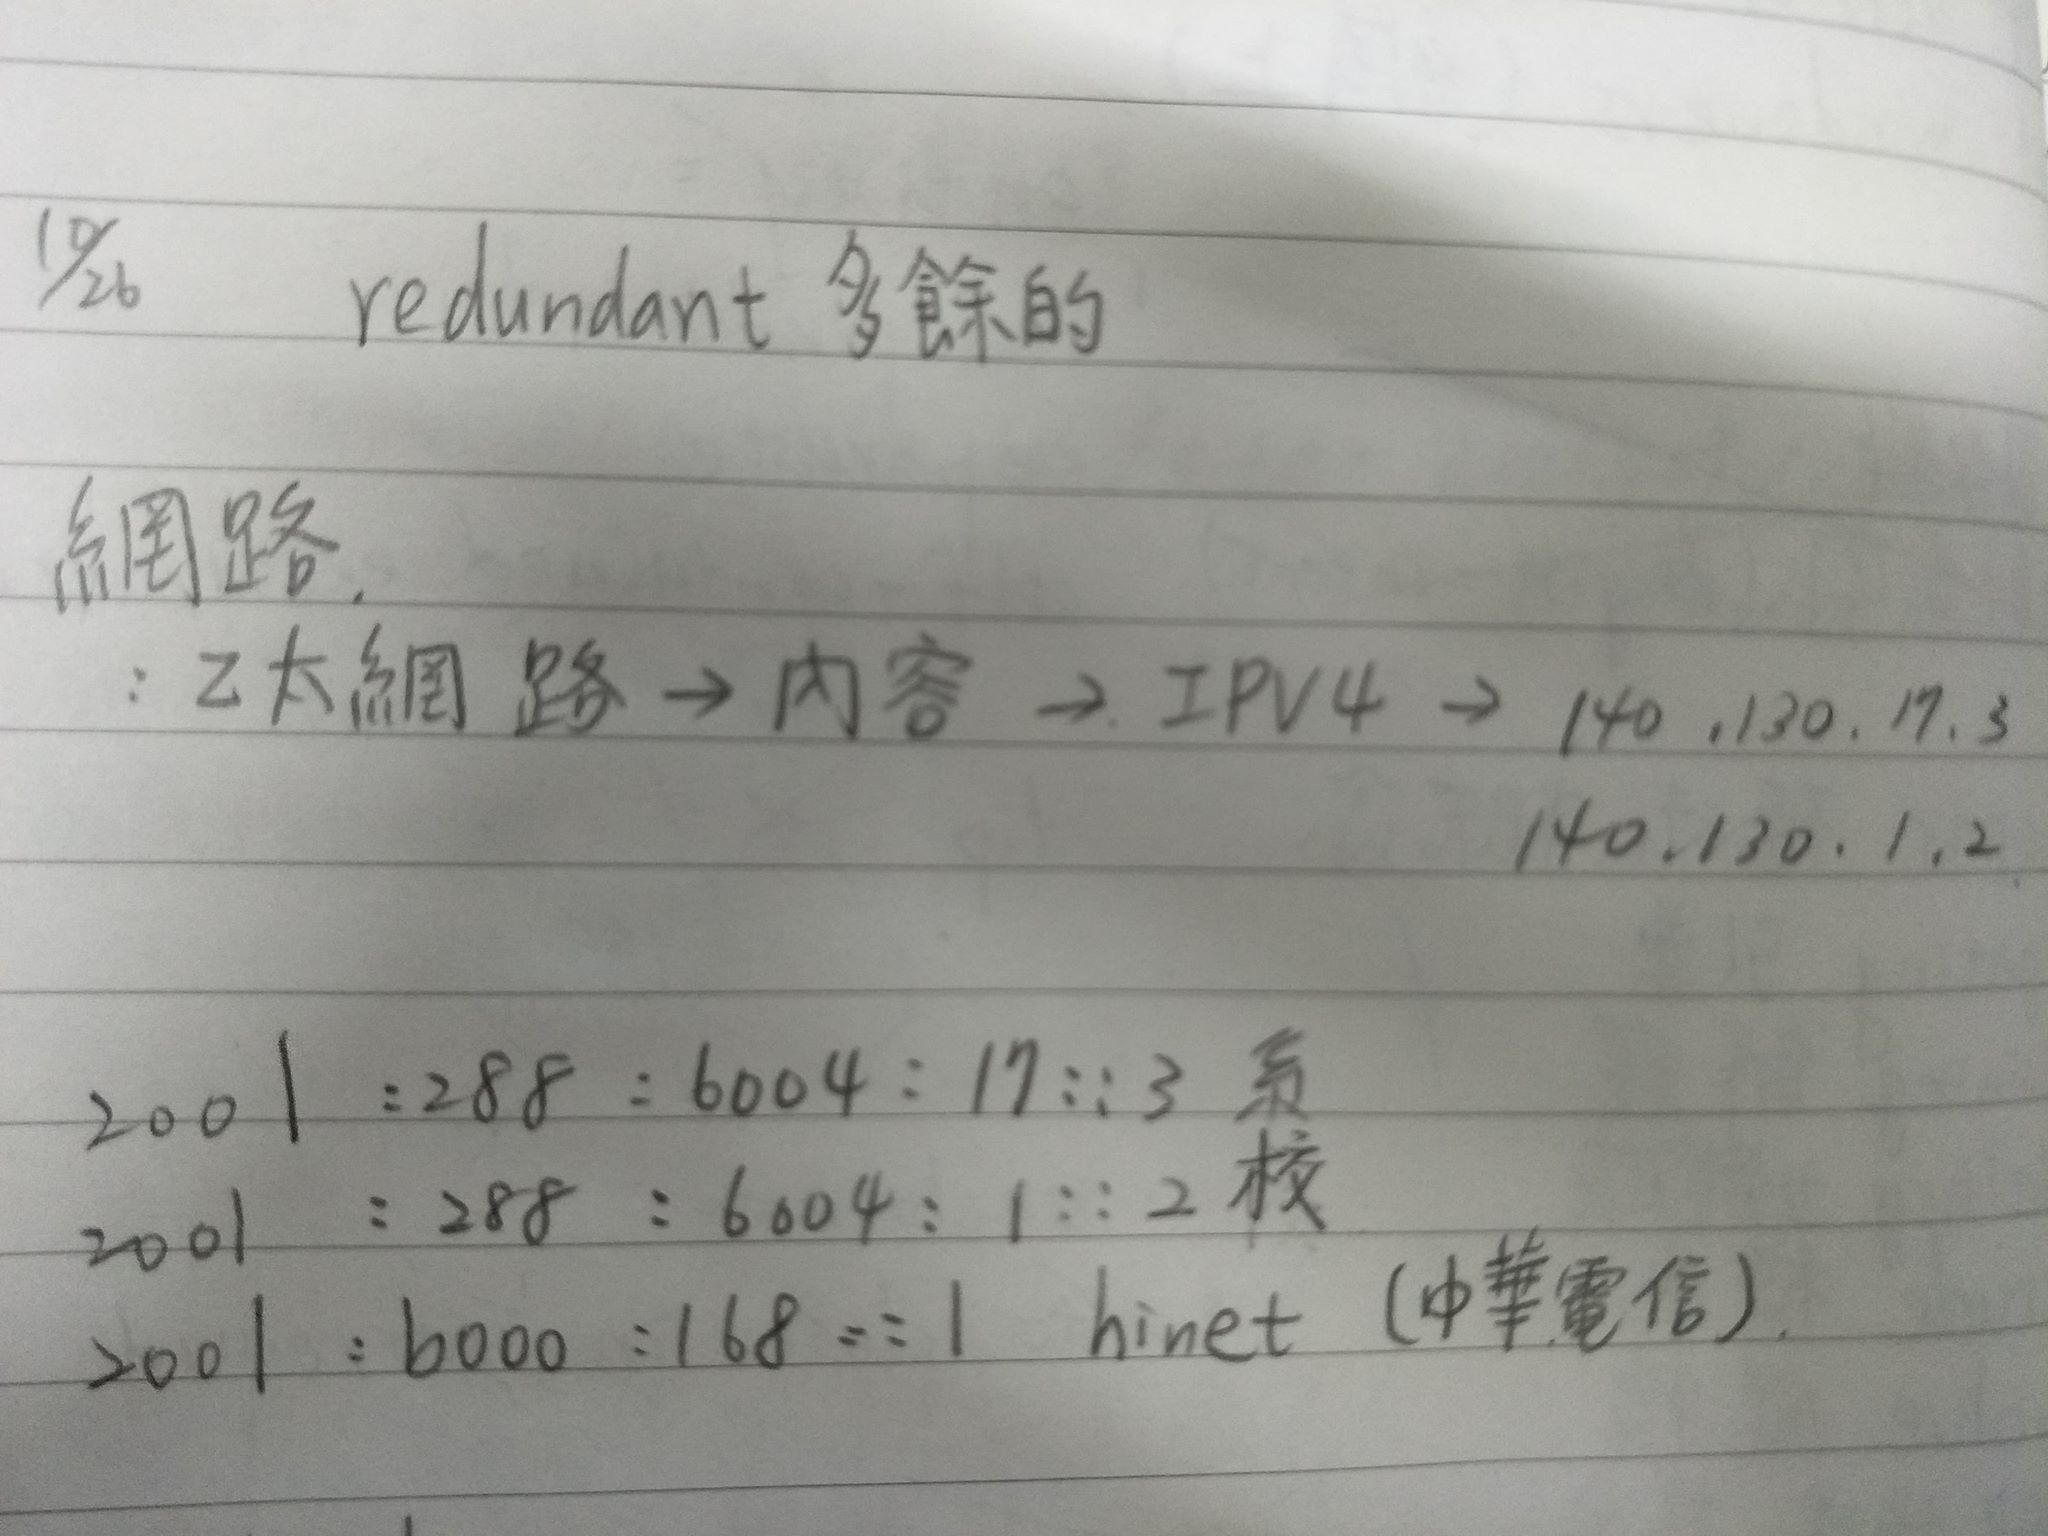 10/26 redundant 多餘的
網路.
: 乙太網路 → 內容 → IPV4 → 140.130.17.3
140.130.1.2
2001 :288 :6004 : 17 ::: 3 系
2001 :288 :6004 : 1 ::: 2 校
2001 :b000 :168 ::: 1 hinet (中華電信).